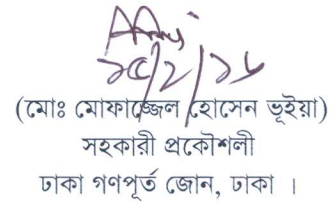 ২৫/২/১৬
(মোঃ মোফাজ্জেল হোসেন ভূইয়া)
সহকারী প্রকৌশলী
ঢাকা গণপূর্ত জোন, ঢাকা ।